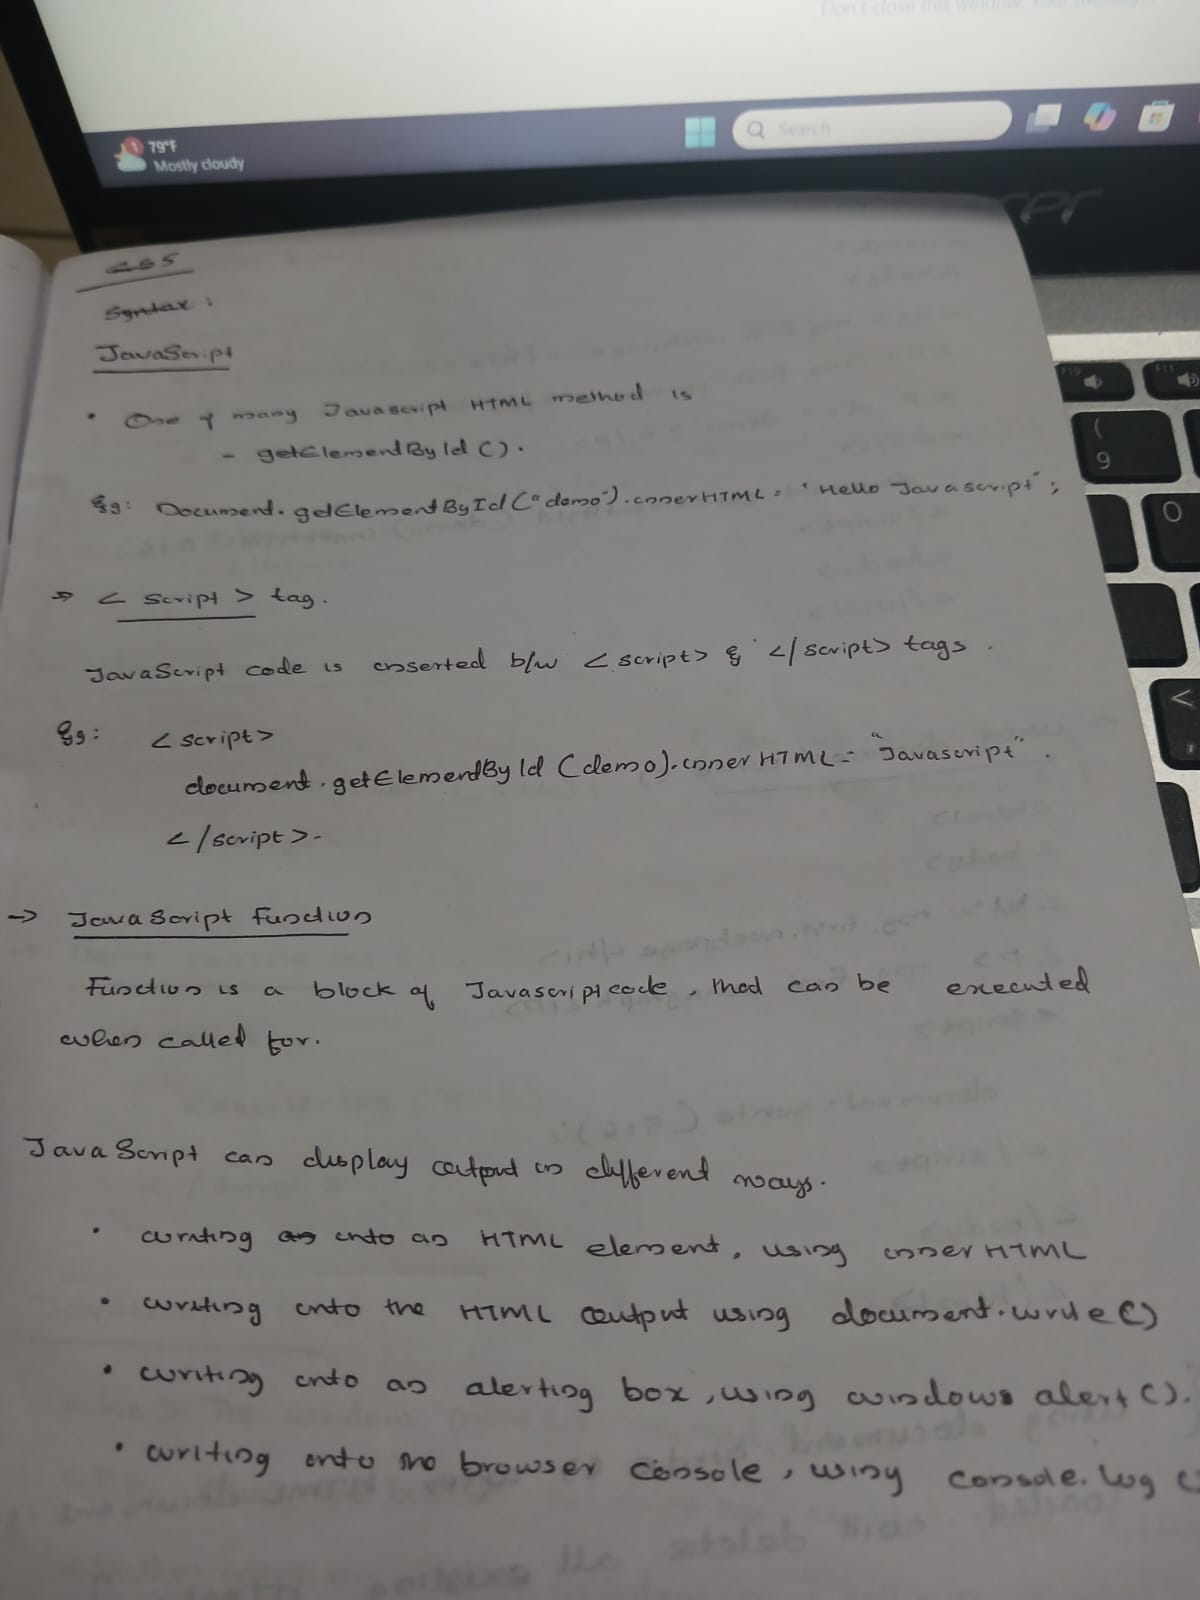 Don't close this window. Your messages
1 79°F
Mostly cloudy
Search
acer
CSS
Syntax :
JavaScript
• One of many Javascript HTML method is
- getElementById ().
Eg: Document.getElementById("demo").innerHTML = 'Hello Javascript";
→ < script > tag.
JavaScript code is inserted b/w <script> & </script> tags.
Eg: <script>
document.getElementById (demo).innerHTML = "Javascript".
</script>.
→ JavaScript Function
Function is a block of Javascript code, that can be executed
when called for.
JavaScript can display output in different ways.
• writing an into an HTML element, using innerHTML
• writing into the HTML output using document.write()
• writing into an alerting box, using windows alert().
• writing into the browser console, using console.log (
F10
F11
(
9
O
<
,